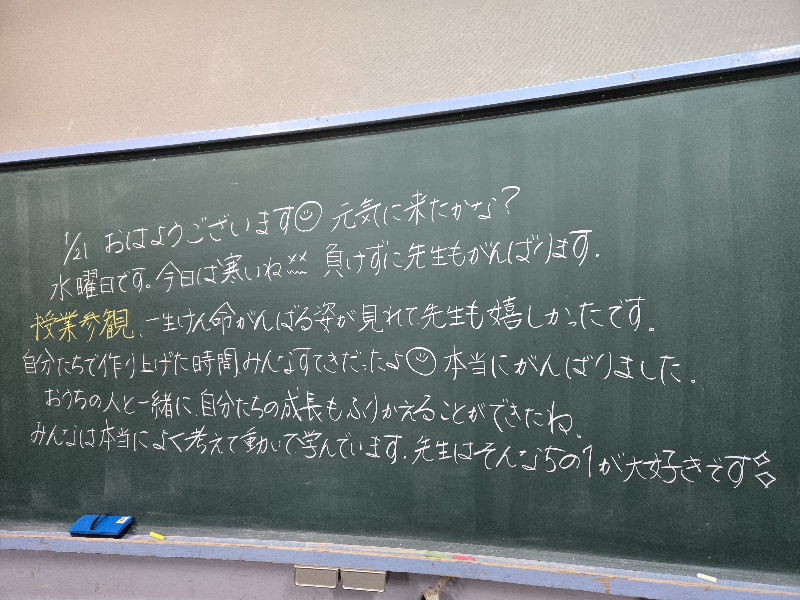 1/21 おはようございます☺ 元気に来たかな?
水曜日です。今日は寒いね 負けずに先生もがんばります.
授業参観、一生けん命がんばる姿が見れて、先生も嬉しかったです。
自分たちで作り上げた時間、みんなすてきだったよ☺ 本当にがんばりました。
おうちの人と一緒に、自分たちの成長もふりかえることができたね.
みんなは本当によく考えて動いて学んでいます. 先生はそんな5の1が大好きです